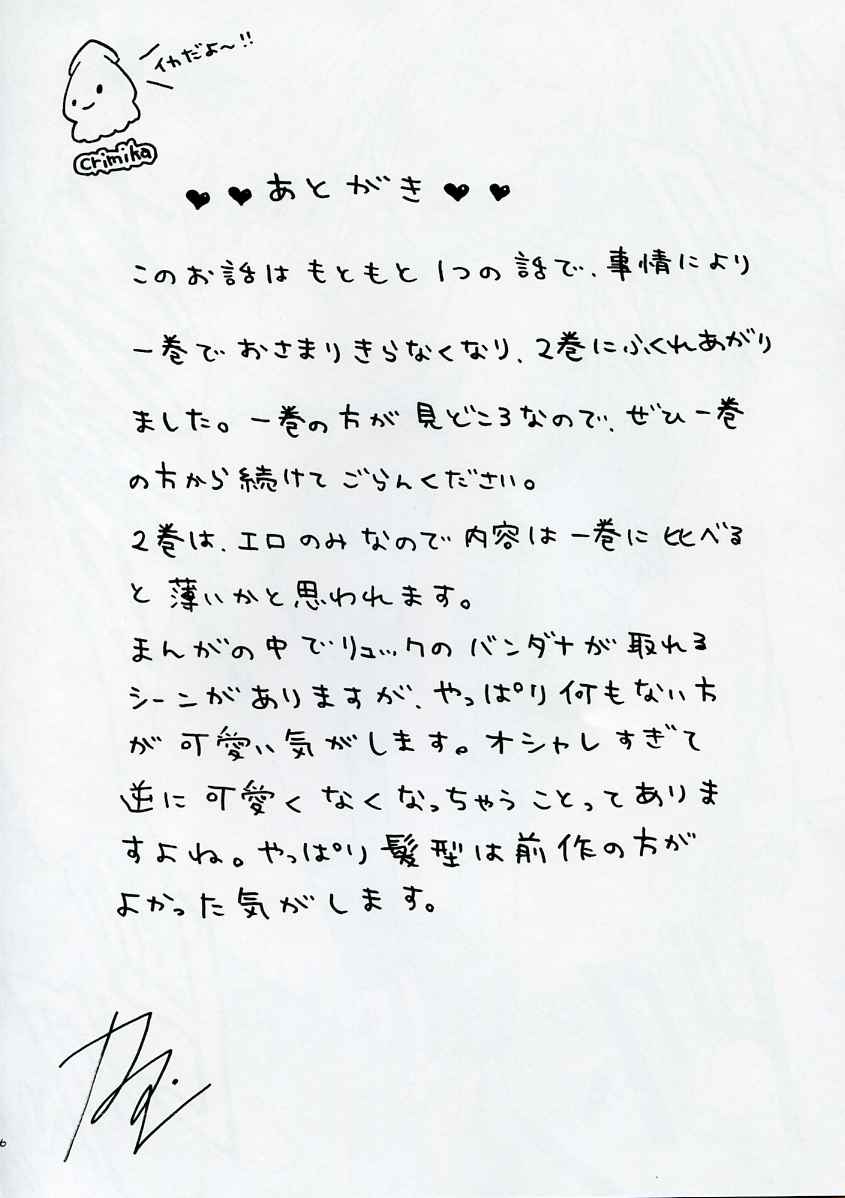 イカだよ〜!!
crimika
♥ ♥ あとがき ♥ ♥
このお話はもともと1つの話で、事情により
一巻でおさまりきらなくなり、2巻にふくれあがり
ました。一巻の方が見どころなので、ぜひ一巻
の方から続けてごらんください。
2巻は、エロのみなので内容は一巻に比べる
と薄いかと思われます。
まんがの中でリュックのバンダナが取れる
シーンがありますが、やっぱり何もない方
が可愛い気がします。オシャレすぎて
逆に可愛くなくなっちゃうことってありま
すよね。やっぱり髪型は前作の方が
よかった気がします。
6